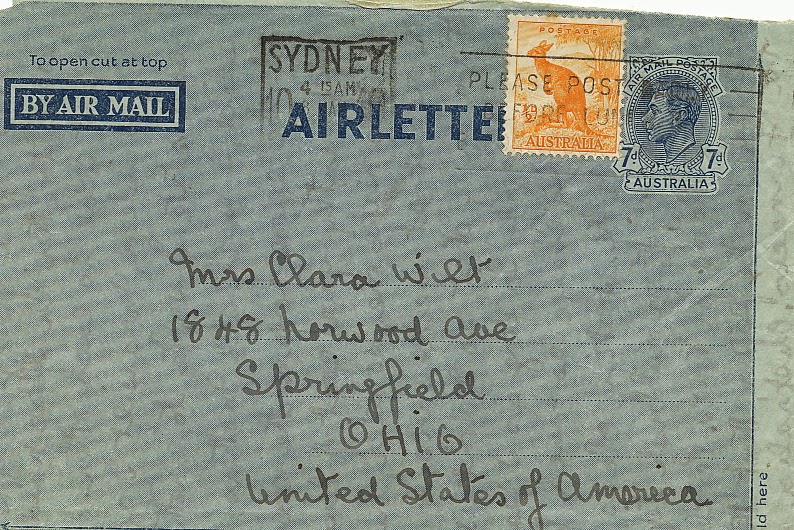 To open cut at top
BY AIR MAIL
SYDNEY
4 15 AM
10
PLEASE POST EARLY
BEFORE LUNCH
AIRLETTE
POSTAGE
½D
AUSTRALIA
AIR MAIL POSTAGE
7d 7d
AUSTRALIA
Mrs Clara Wilt
1848 Norwood Ave
Springfield
OHIO
United States of America
ld here.